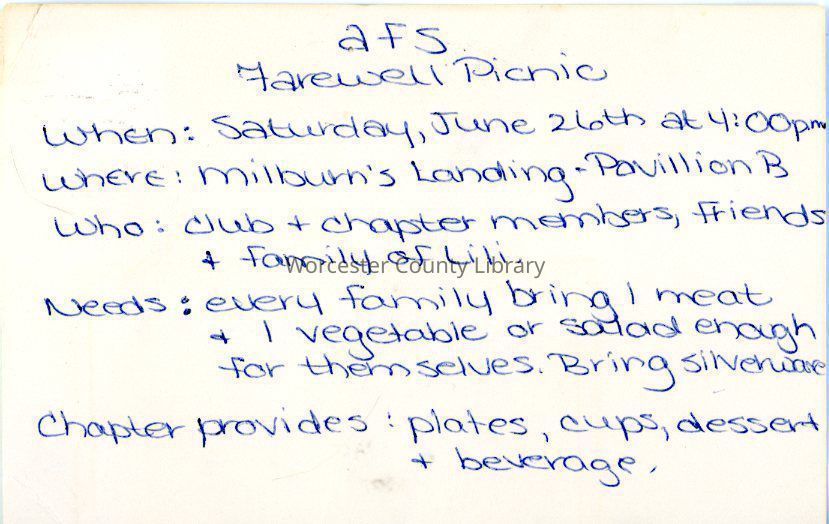 AFS
Farewell Picnic
When: Saturday, June 26th at 4:00pm
Where: Milburn's Landing - Pavillion B
Who: club + chapter members, friends
+ family of Lili.
Worcester County Library
Needs: every family bring 1 meat
+ 1 vegetable or salad enough
for themselves. Bring silverware
Chapter provides: plates, cups, dessert
+ beverage.